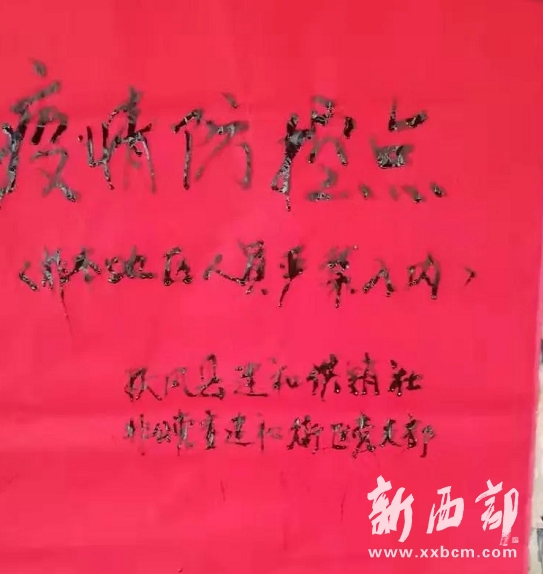 疫情防控点
（非本地区人员严禁入内）
扶风县建和供销社
非公党委建和街区党支部
新西部
www.xxbcm.com